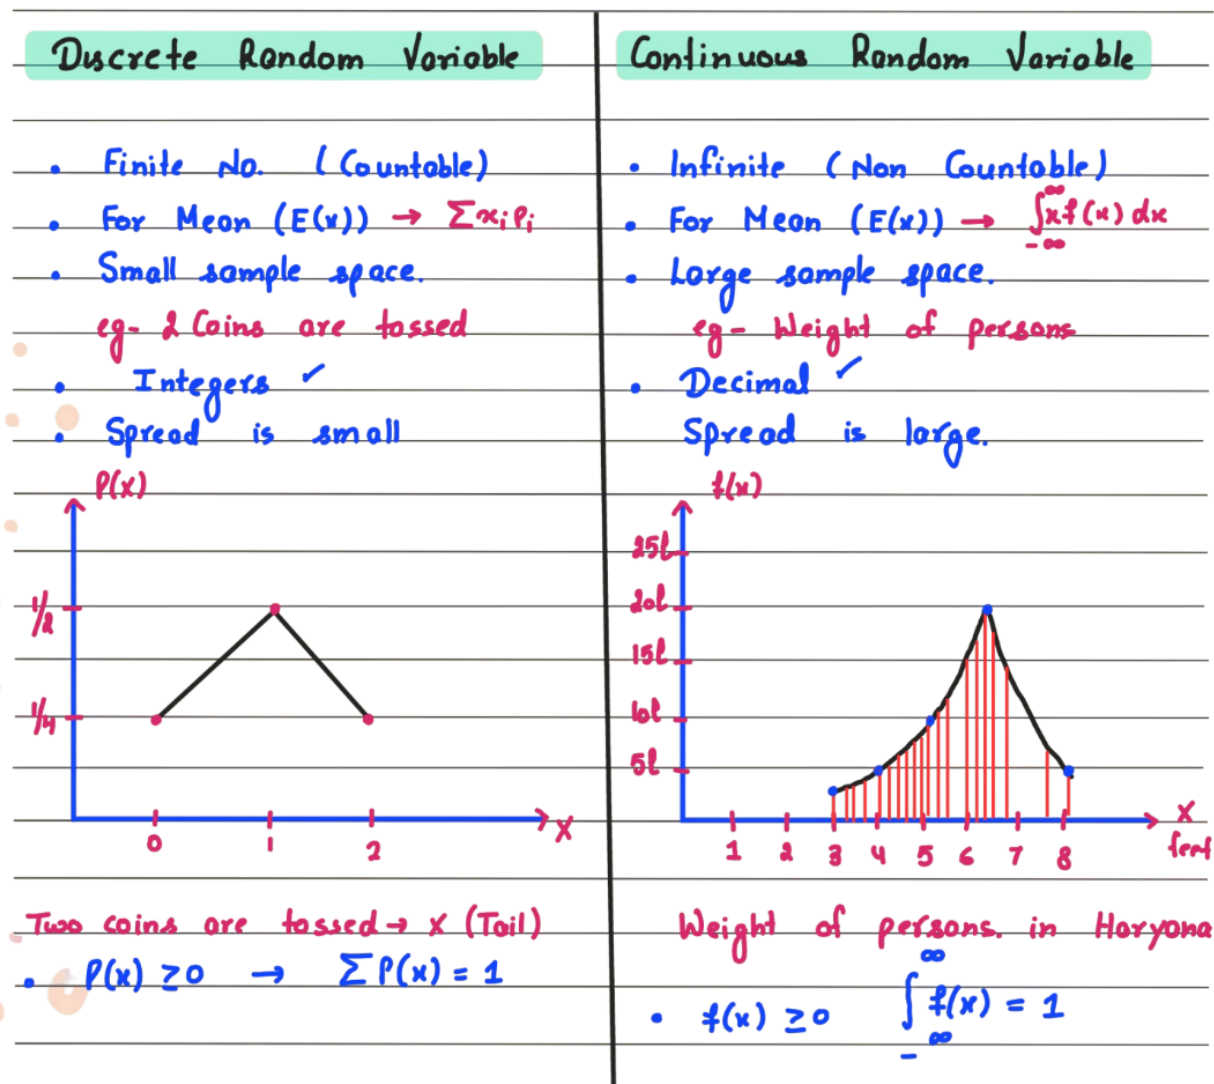 Discrete Random Variable
• Finite No. (Countable)
• For Mean (E(x)) → Σxᵢpᵢ
• Small sample space.
eg- 2 Coins are tossed
• Integers ✓
• Spread is small
P(x)
1/2
1/4
0 1 2 X
Two coins are tossed → X (Tail)
• P(x) ≥0 → ΣP(x) = 1
Continuous Random Variable
• Infinite (Non Countable)
• For Mean (E(x)) → ∫_{-∞}^{∞} xf(x) dx
• Large sample space.
eg- Weight of persons
• Decimal ✓
Spread is large.
f(x)
25l
20l
15l
10l
5l
1 2 3 4 5 6 7 8 X
feet
Weight of persons. in Haryana
• f(x) ≥0 ∫_{-∞}^{∞} f(x) = 1